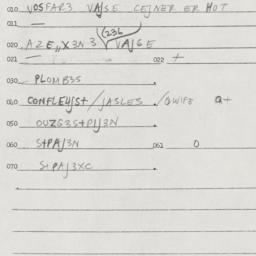 010 VOSFAR3 VAJSE CEJNER ER HOT
011 —
(236
020 AZE,,X3N3 VAJSE
021 — 022 +
030 PLOMB3S
040 CONFLEUJST / JASLES / OWIFE a+
050 OUZG3S+PIJ3N
060 S+PAJ3N 061 O
070 S+PAJ3XC